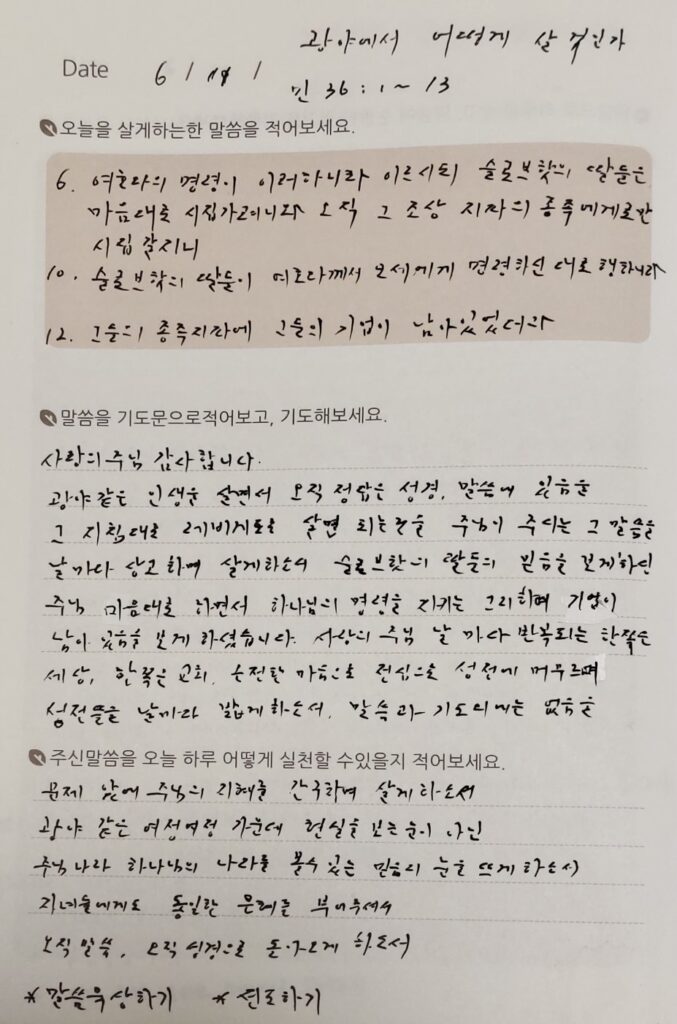 광야에서 어떻게 살 것인가
Date 6 / 14 /
민 36 : 1 ~ 13
오늘을 살게하는한 말씀을 적어보세요.
6. 여호와의 명령이 이러하니라 이르시되 슬로브핫의 딸들은
마음대로 시집가려니와 오직 그 조상 지파의 종족에게로만
시집 갈지니
10. 슬로브핫의 딸들이 여호와께서 모세에게 명령하신 대로 행하니라
12. 그들의 종족지파에 그들의 기업이 남아있었더라
말씀을 기도문으로적어보고, 기도해보세요.
사랑의 주님 감사합니다.
광야 같은 인생을 살면서 오직 정답은 성경, 말씀에 있음을
그 지침대로 살면 되는 것을 주님이 주시는 그 말씀을
날마다 상고하며 살게하소서 슬로브핫의 딸들의 믿음을 보게하신
주님 마음대로 하면서 하나님의 명령을 지키는 그리하며 기업이
남아 있음을 보게 하셨습니다. 사랑의 주님 날 마다 반복되는 한쪽은
세상, 한쪽은 교회, 온전한 마음으로 전심으로 성전에 머무르며
성전뜰을 날마다 밟게하소서, 말씀과 기도외에는 없음을
주신말씀을 오늘 하루 어떻게 실천할 수있을지 적어보세요.
문제 앞에 주님의 지혜를 간구하며 살게 하소서
광야 같은 여정 가운데 현실을 보는 눈이 아닌
주님 나라 하나님의 나라를 볼수 있는 믿음의 눈을 뜨게 하소서
자녀들에게도 동일한 은혜를 부어주셔서
오직 말씀, 오직 성경으로 돌아오게 하소서
* 말씀묵상하기 * 선포하기